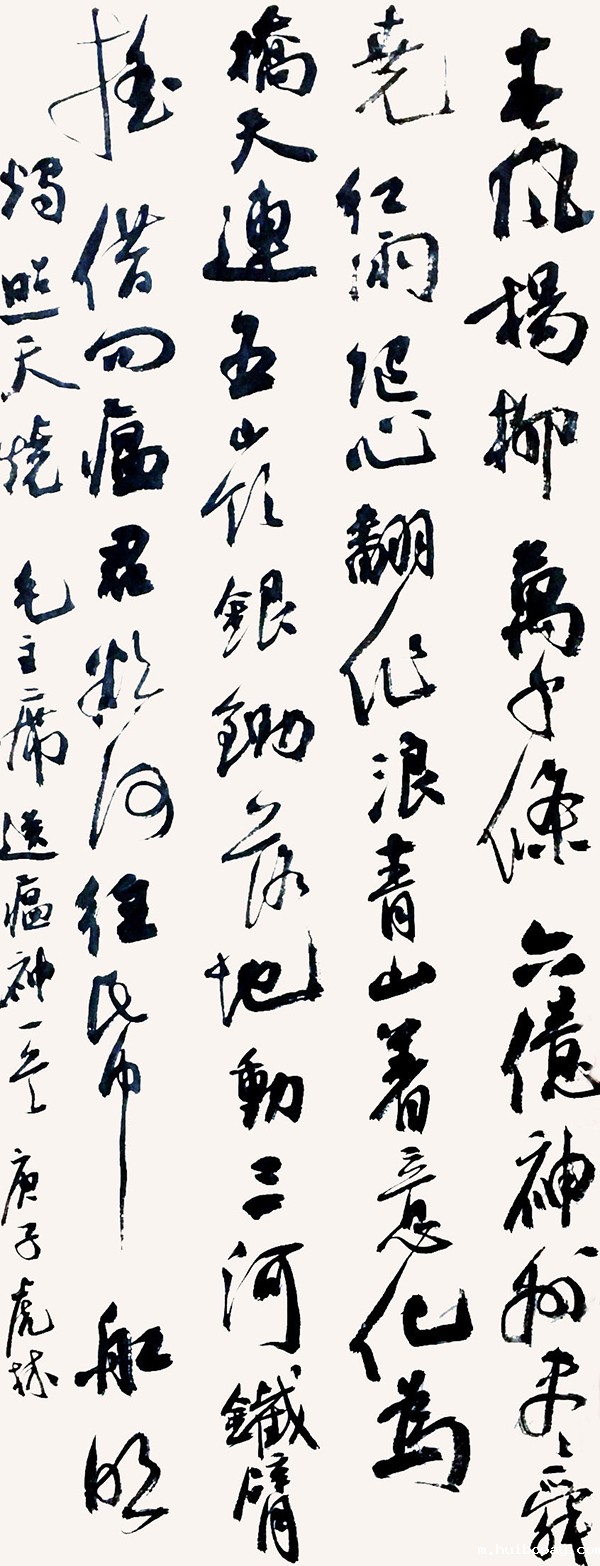 春風楊柳萬千條六億神州尽舜
堯紅雨随心翻作浪青山着意化為
橋天連五嶺銀鋤落地動三河鐵臂
搖借问瘟君欲何往帋船明
燭照天燒 毛主席送瘟神一首 庚子虎林